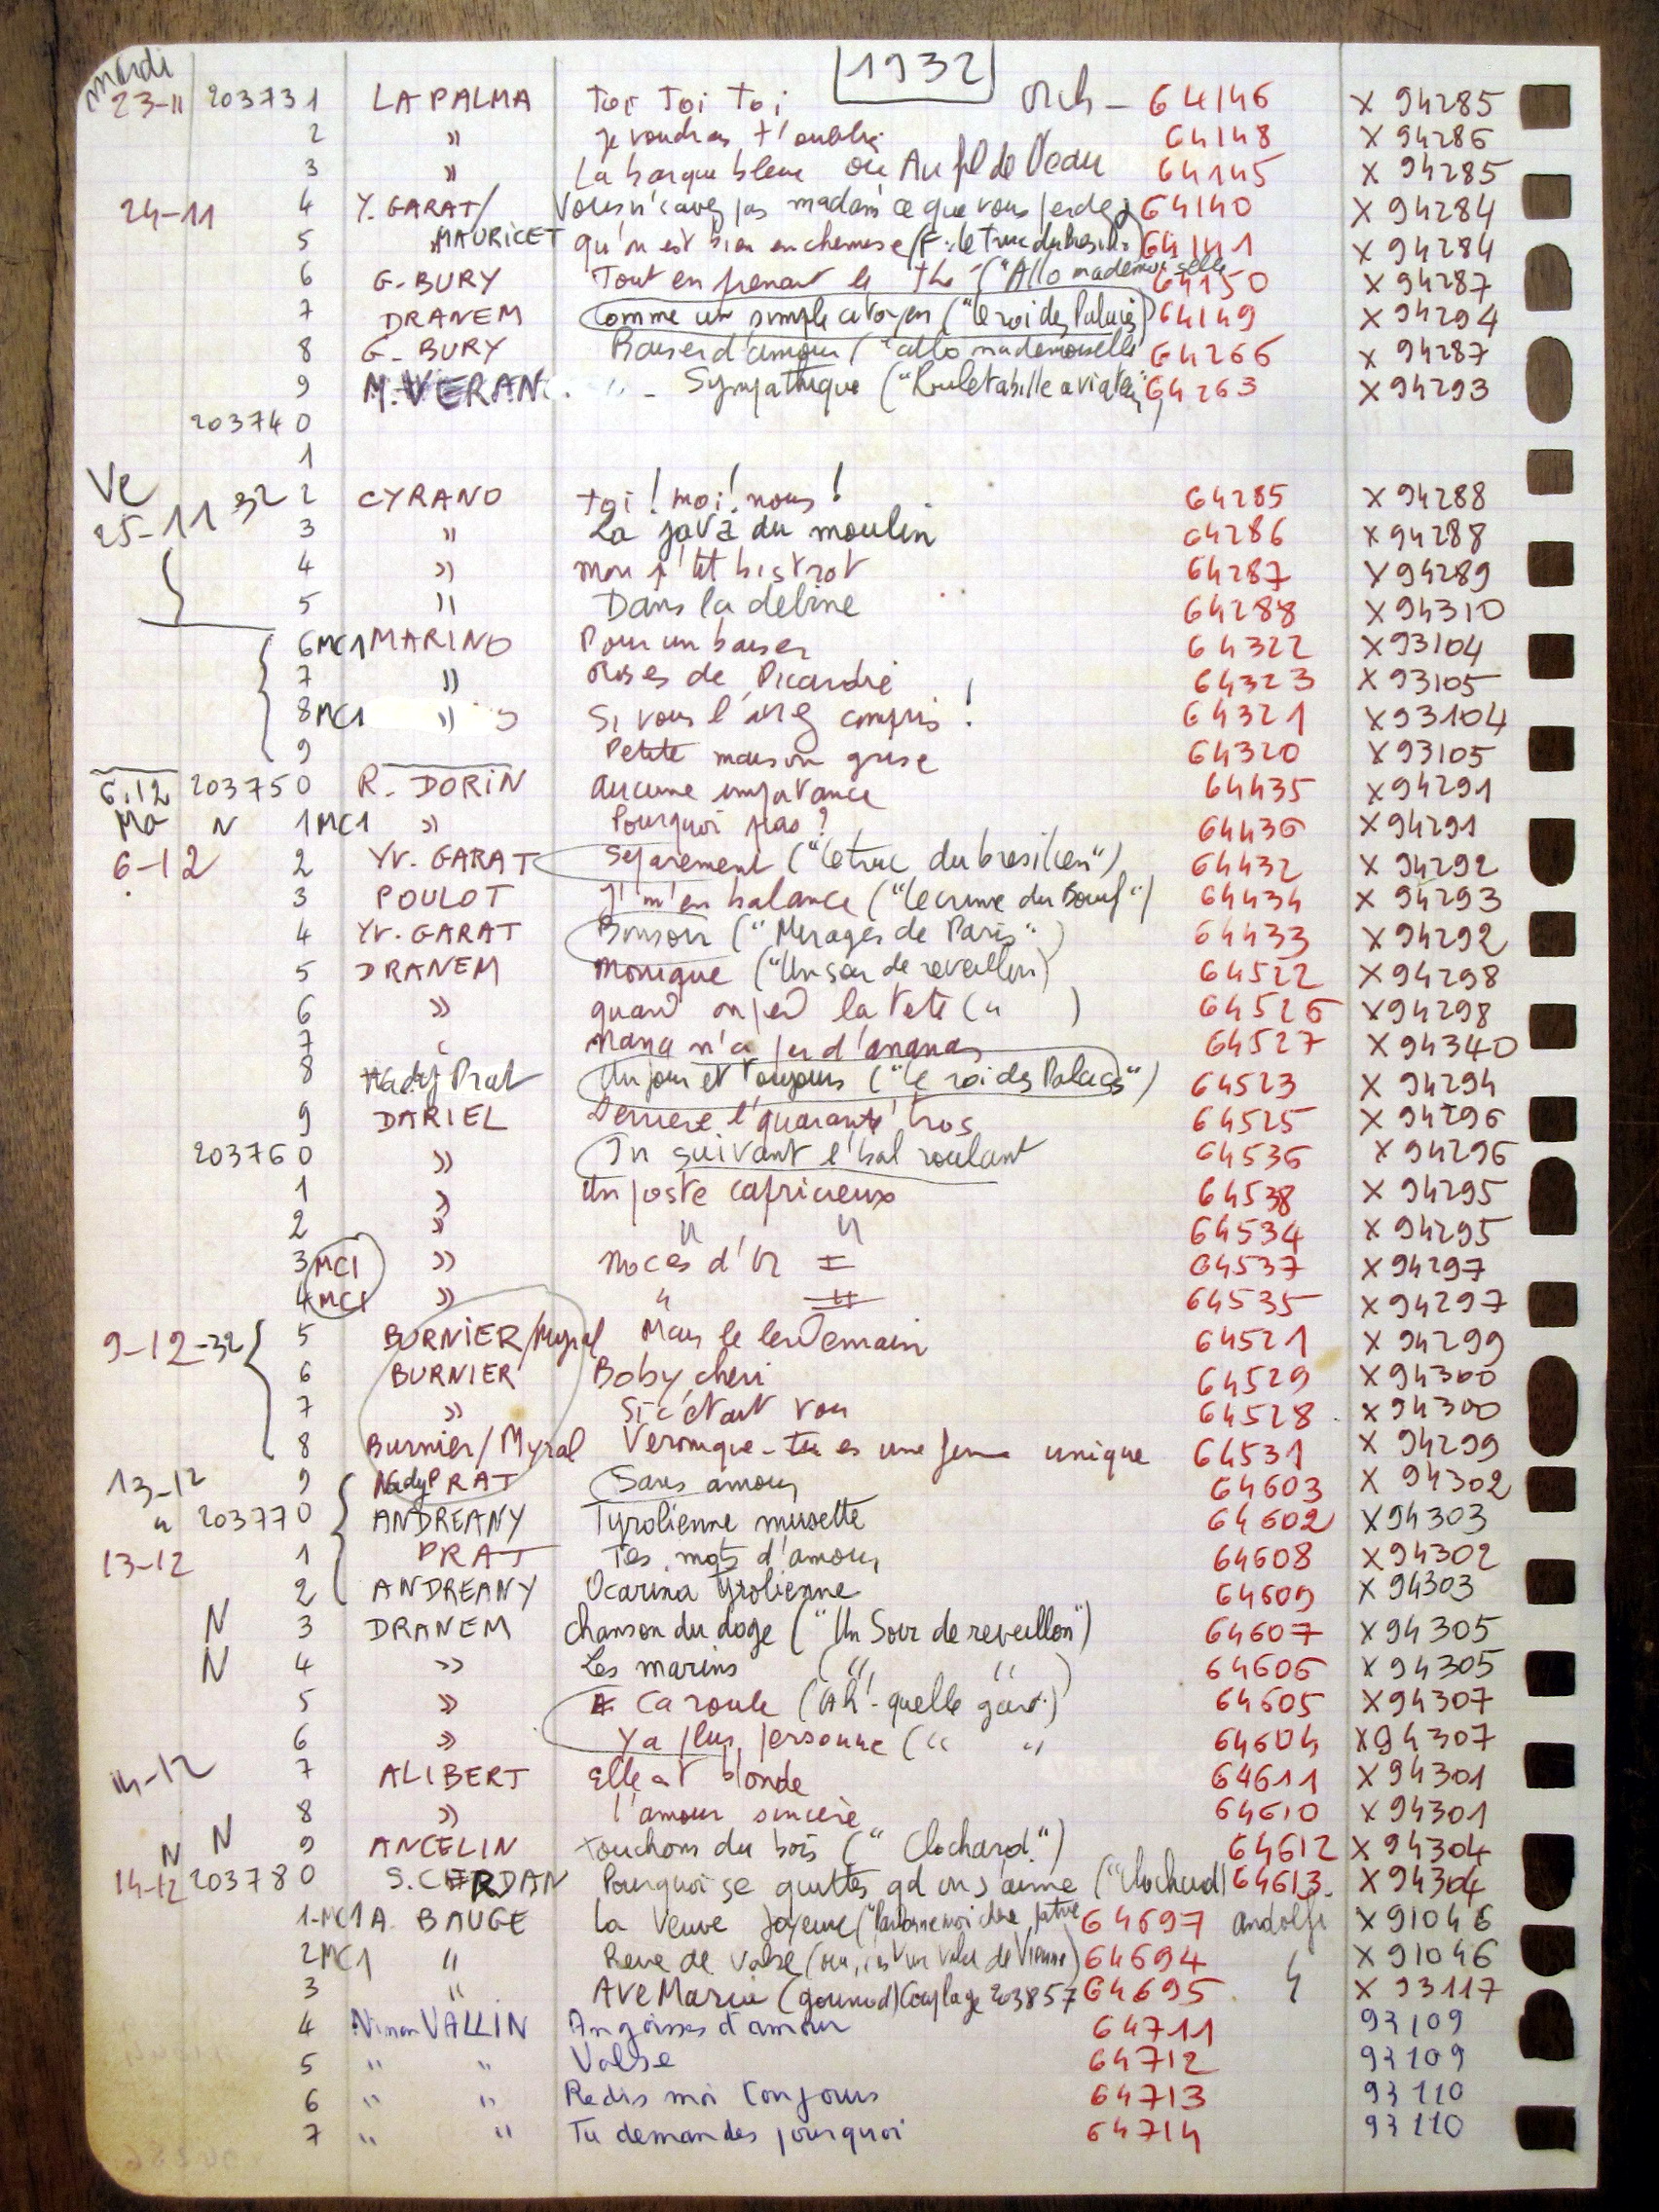 1932
mardi
23-11 203731 LA PALMA Toi Toi Toi orch - 64146 X 94285
2 " Je voudrais t'oublier 64148 X 94286
3 " La barque bleue ou Au fil de l'eau 64145 X 94285
24-11 4 Y. GARAT/ Vous n'savez pas madam' ce que vous perdez 64140 X 94284
5 MAURICET qu'on est bien en chemise (F: le truc du bresil.) 64141 X 94284
6 G. BURY Tout en prenant le thé ("Allo mademoiselle 64150 X 94287
7 DRANEM Comme un simple citoyen ("le roi des Palaces) 64149 X 94294
8 G. BURY Baiser d'amour ("allo mademoiselle 64266 X 94287
9 M. VERAN Sympathique ("Rouletabille aviateur" 64263 X 94293
203740
1
Ve
25-11 32 2 CYRANO toi! moi! nous! 64285 X 94288
3 " La java du moulin 64286 X 94288
4 " mon p'tit bistrot 64287 X 94289
5 " Dans la debine 64288 X 94310
6 MC1 MARINO Pour un baiser 64322 X 93104
7 " Roses de Picardie 64323 X 93105
8 MC1 " Si vous l'aviez compris! 64321 X 93104
9 Petite maison grise 64320 X 93105
6.12 203750 R. DORIN aucune importance 64435 X 94291
Ma N 1 MC1 " Pourquoi pas? 64436 X 94291
6-12 2 Yv. GARAT Séparement ("le truc du bresilien") 64432 X 94292
3 POULOT J'm'en balance ("le crime du Bouif") 64434 X 94293
4 Yv. GARAT Bonsoir ("Mirages de Paris") 64433 X 94292
5 DRANEM Monique ("Un soir de reveillon) 64522 X 94298
6 " quand on perd la tete (" ) 64526 X 94298
7 " Nana n'a pas d'ananas 64527 X 94340
8 Nady Prat Un jour et toujours ("le roi des Palaces") 64523 X 94294
9 DARIEL Derriere l'quarante' tros 64525 X 94296
203760 " In suivant l'bal roulant 64536 X 94296
1 " Un poste capricieux 64538 X 94295
2 " " " 64534 X 94295
3 MC1 " Noces d'Or I 64537 X 94297
4 MC1 " " II 64535 X 94297
9-12-32 5 BURNIER/Myral Mais le lendemain 64521 X 94299
6 BURNIER Boby, cheri 64529 X 94300
7 " Si c'etait vou 64528 X 94300
8 Burnier/Myral Veronique - tu es une femme unique 64531 X 94299
13-12 9 Nady PRAT Sans amour 64603 X 94302
" 203770 ANDREANY Tyrolienne musette 64602 X 94303
13-12 1 PRAT Tes mots d'amour 64608 X 94302
2 ANDREANY Ocarina tyrolienne 64609 X 94303
N 3 DRANEM Chanson du doge ("Un Soir de reveillon") 64607 X 94305
N 4 " Les marins (" ") 64606 X 94305
5 " Ca roule (Ah! quelle gare.) 64605 X 94307
6 " Y a plus personne (" " 64604 X 94307
14-12 7 ALIBERT Elle est blonde 64611 X 94301
8 " l'amour sincère 64610 X 94301
N N 9 ANCELIN touchons du bois (" Clochard.") 64612 X 94304
14-12 203780 S. CERDAN Pourquoi se quitter qd on s'aime ("Clochard) 64613. X 94304
1-MC1 A. BAUGE La Veuve Joyeuse ("Pardonne moi chère patrie 64697 andolfi X 91046
2 MC1 " Reve de Valse (oui, c'est un Valse de Vienne) 64694 " X 91046
3 " AVE Maria (gounod) Couplage 203857 64695 X 93117
4 Ninon VALLIN Angoisses d'amour 64711 93109
5 " " Valse 64712 93109
6 " " Redis moi toujours 64713 93110
7 " " Tu demandes pourquoi 64714 93110